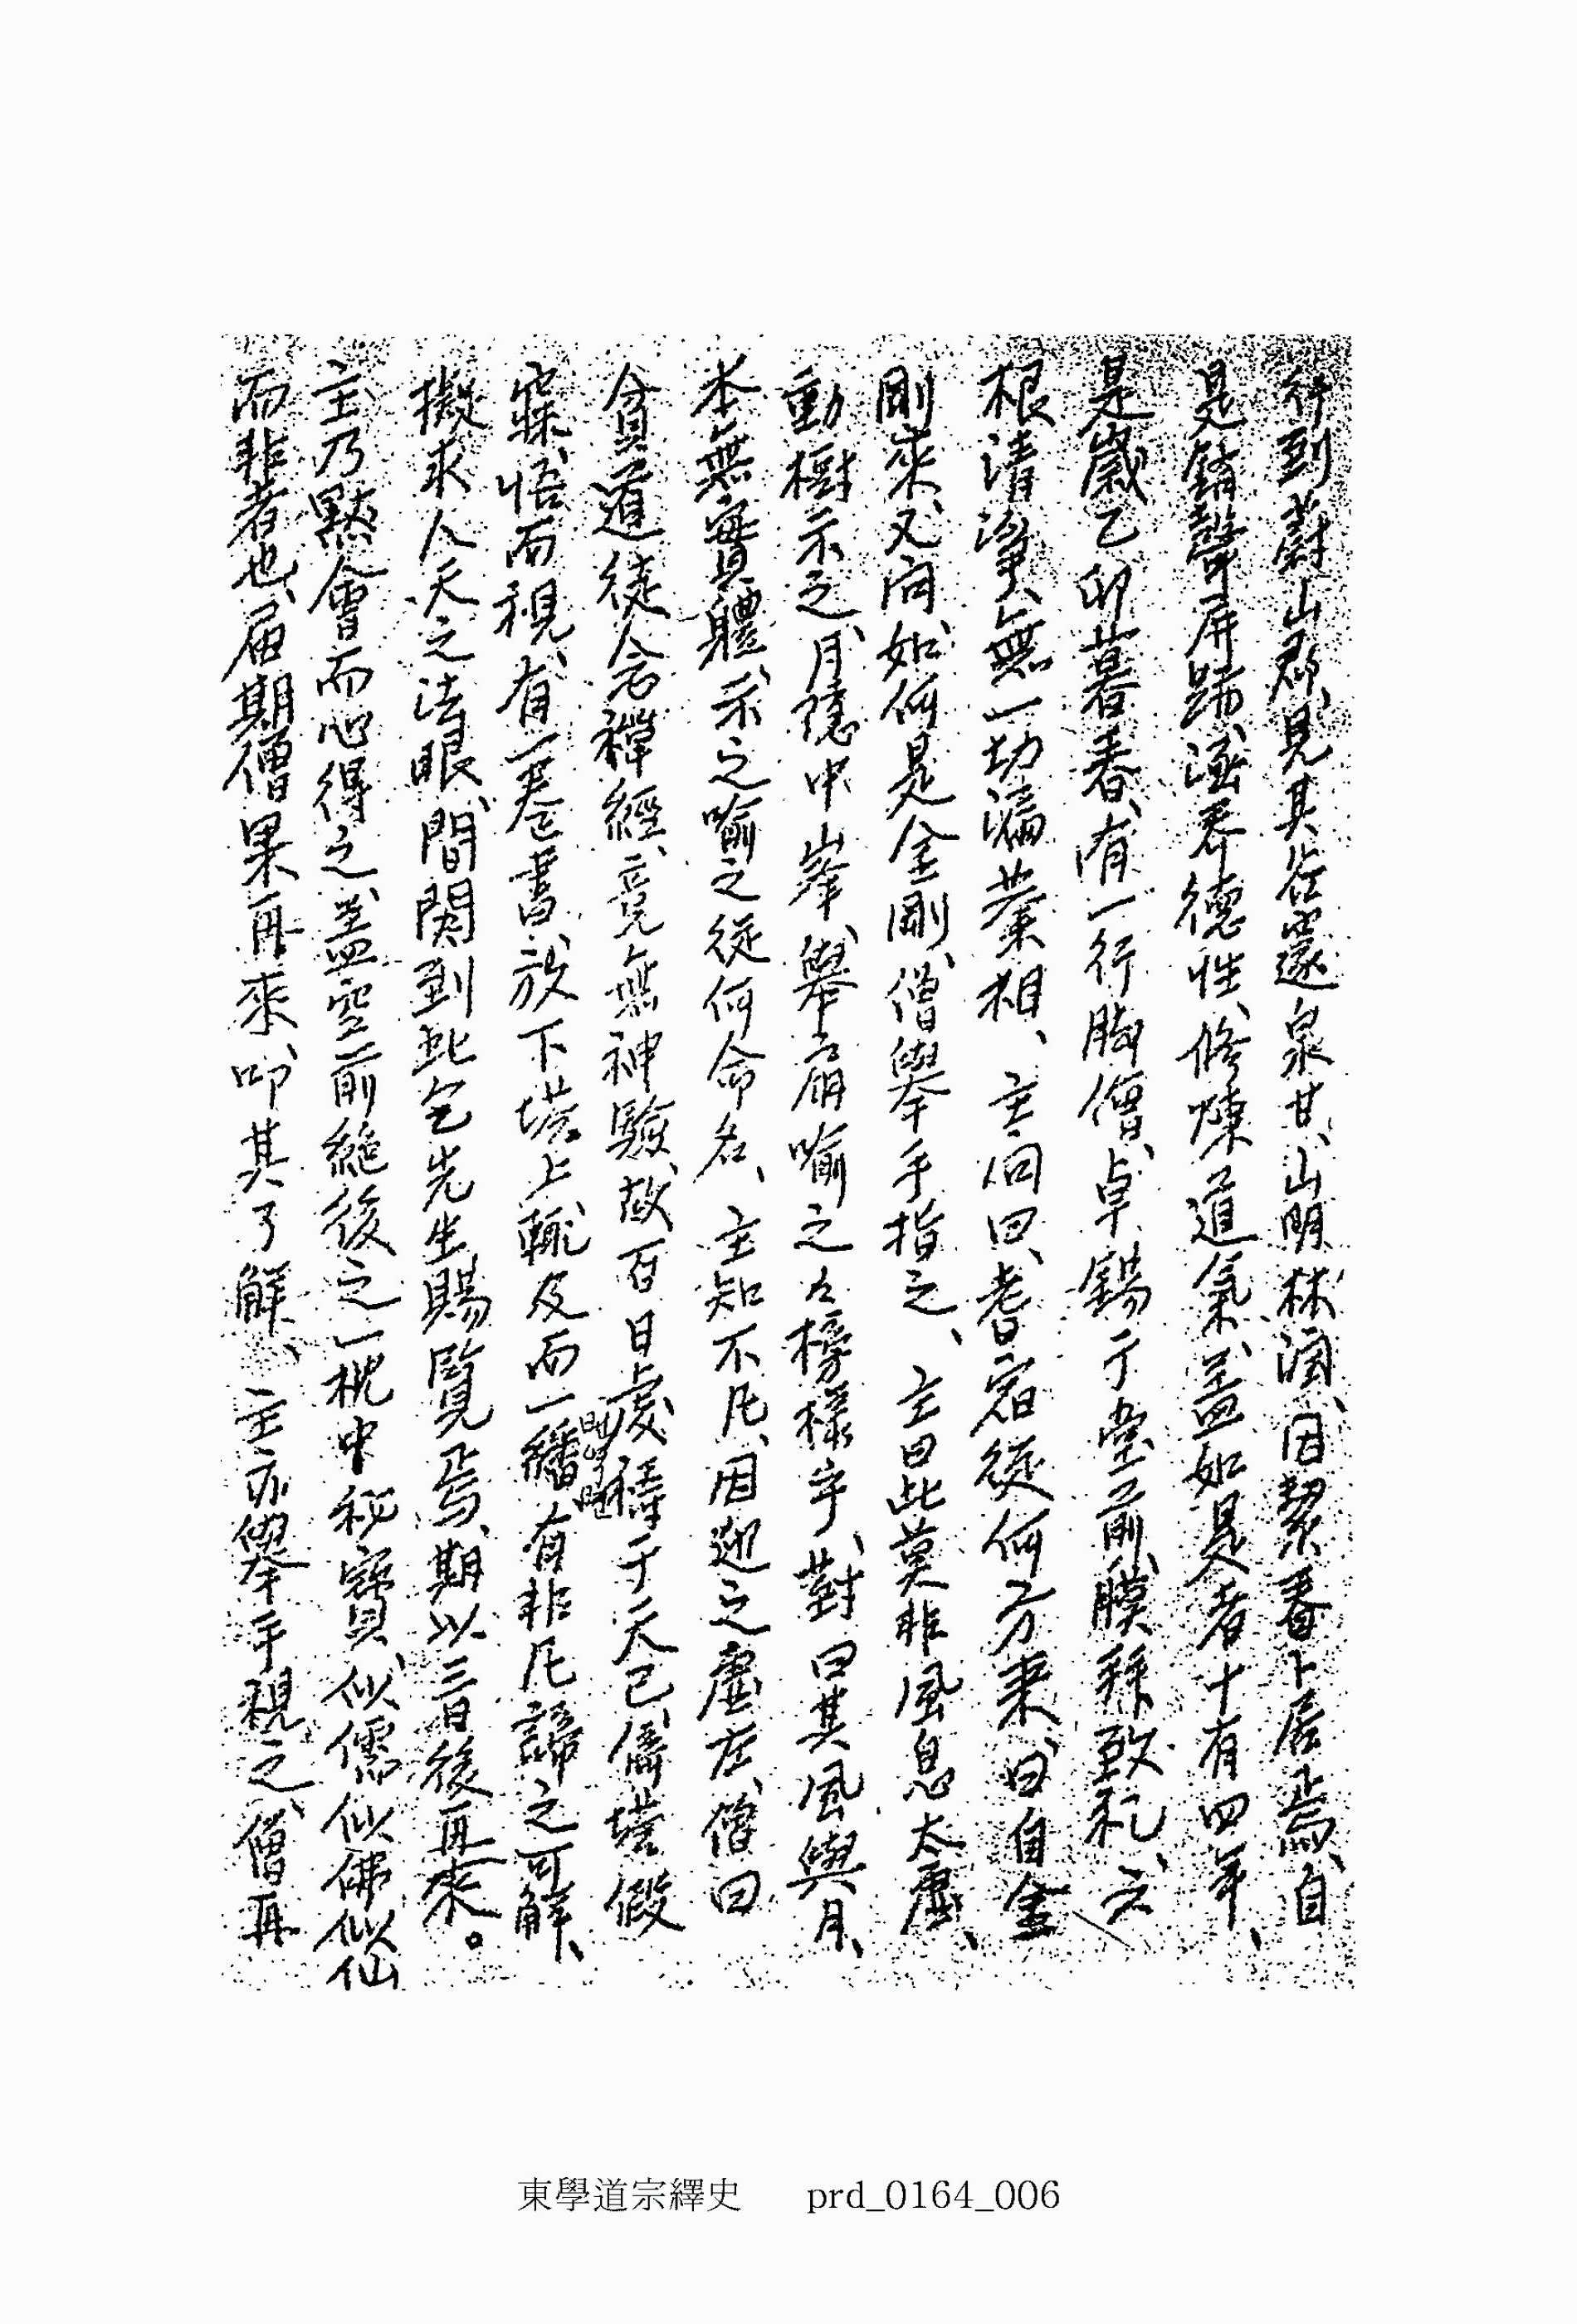 行到蔚山郡、見其谷邃泉甘、山明林潤、因絜眷卜居焉、自
是銷聲屏跡、涵養德性、修煉道氣、盖如是者十有四年、
是歲乙卯暮春、有一行脚僧、卓錫于堂前、膜拜致礼、云
根清淨、無一切漏棄相、主问曰、耆宿從何方来、曰自金
剛來、又问如何是金剛、僧擧手指之、主曰此莫非風息太虛、
動樹示之、月隱中峯、擧扇喩之々榜樣乎、對曰其風與月、
本無實體、示之喩之從何命名、主知不凡、因迎之虛左、僧曰
貧道徒念禪經、竟無神驗、故百日虔禱于天已、倚塔假
寐、悟而視、有一卷書、放下塔上、輒及而一繙、有非凡諦之可解、
擬求人天之法眼、間関到此、乞先生賜覽焉、期以三日後再來。
主乃默會而心得之、盖空前絶後之一枕中秘寶、似儒似佛似仙
而非者也、届期僧果再來、叩其了解、主亦擧手視之、僧再
東學道宗繹史 prd_0164_006